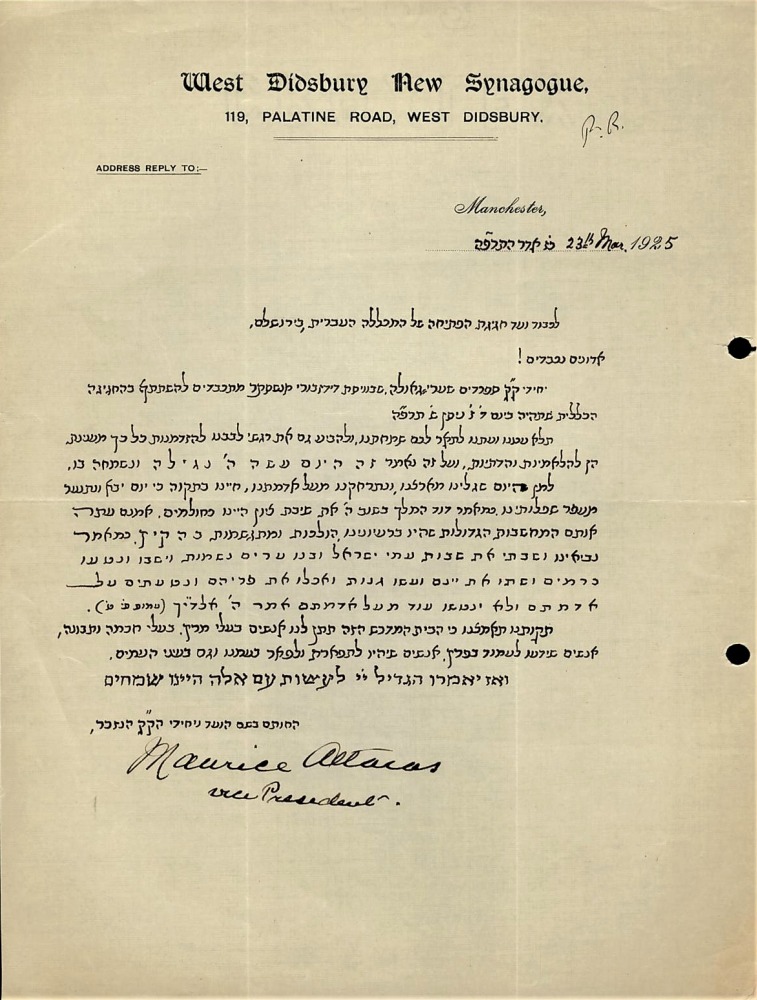 West Didsbury New Synagogue,
119, PALATINE ROAD, WEST DIDSBURY.
ADDRESS REPLY TO:—
Manchester,
אדר התרפ״ה 23th Mar. 1925
לכבוד ועד חגיגת הפתיחה של המכללה העברית, בירושלם,
אדונים נכבדים!
יחידי ק״ק ספרדים שערי גאולה, מתכבדים להשתתף בהחגיגה
הכללית שתהיה ביום ז׳ ניסן ש׳ תרפ״ה
לתאר לכם שמחתנו, ולהביע גם את רגשי לבבנו להזדמנות כל כך
הן להלאמיות והדתיות, ועל זה נאמר זה היום עשה ה׳ נגילה ונשמחה בו.
למן היום שגלינו מארצנו, ונתרחקנו מעל אדמתנו, חיינו בתקוה כי יום יבא
מעפר שפלותינו, כמאמר דוד המלך בשוב ה׳ את שיבת ציון היינו כחולמים. אמנם עתה
אותם המחשבות הגדולות שהיו ברעיונינו, הולכות ומתגשמות, בהקיץ. כמאמר
נביאינו ושבתי את שבות עמי ישראל ובנו ערים נשמות, וישבו ונטעו
כרמים ושתו את יינם ועשו גנות ואכלו את פריהם ונטעתים על
אדמתם ולא ינטשו עוד מעל אדמתם אמר ה׳ אלדיך (עמוס ט׳).
תקותנו תאמצנו כי הבית המדרש הזה תתן לנו אנשים בעלי מרץ. בעלי חכמה ותבונה,
אנשים שידעו לעמוד בפרץ, אנשים שיהיו לתפארת ולפאר בעמנו וגם בעיני העמים.
ואז יאמרו הגדיל יי׳ לעשות עם אלה היינו שמחים
החותם בשם הועד ויחידי הק״ק הנזכר,
Maurice Altaras
vice President.